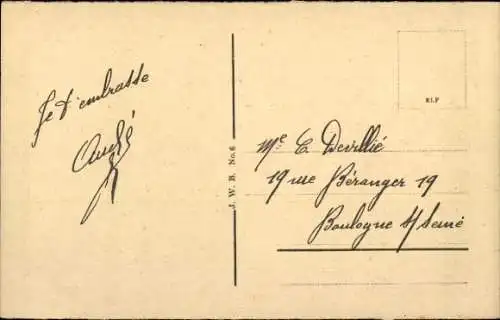 Je t'embrasse
André
J. W. B. No. 6
RLF
Me C Devillié
19 rue Béranger 19
Boulogne s/ Seine